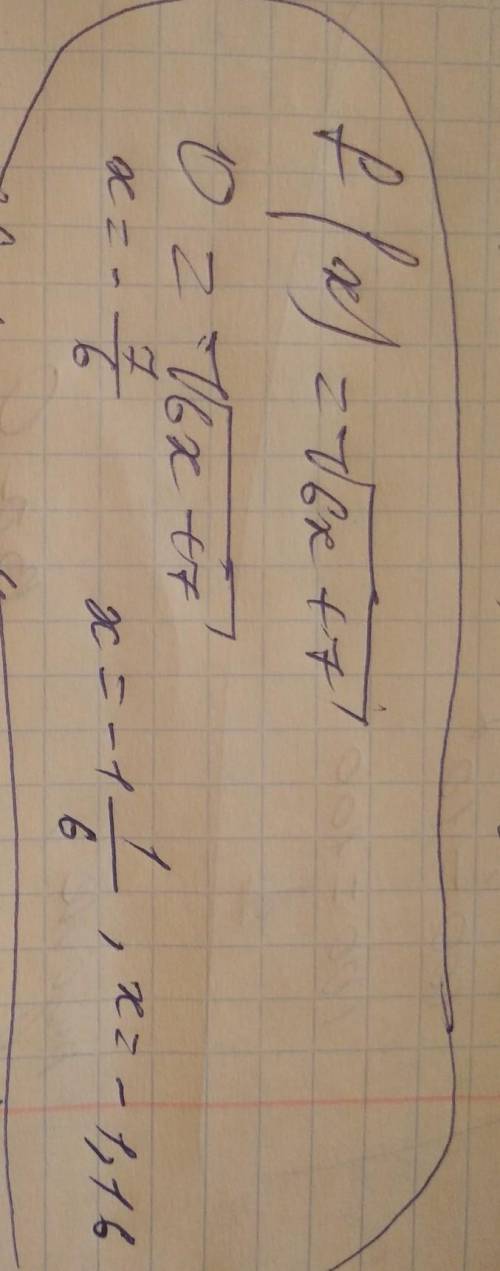 f(x) = √6x+7
0 = √6x+7
x = - 7/6 x = -1 1/6 , x = -1,16